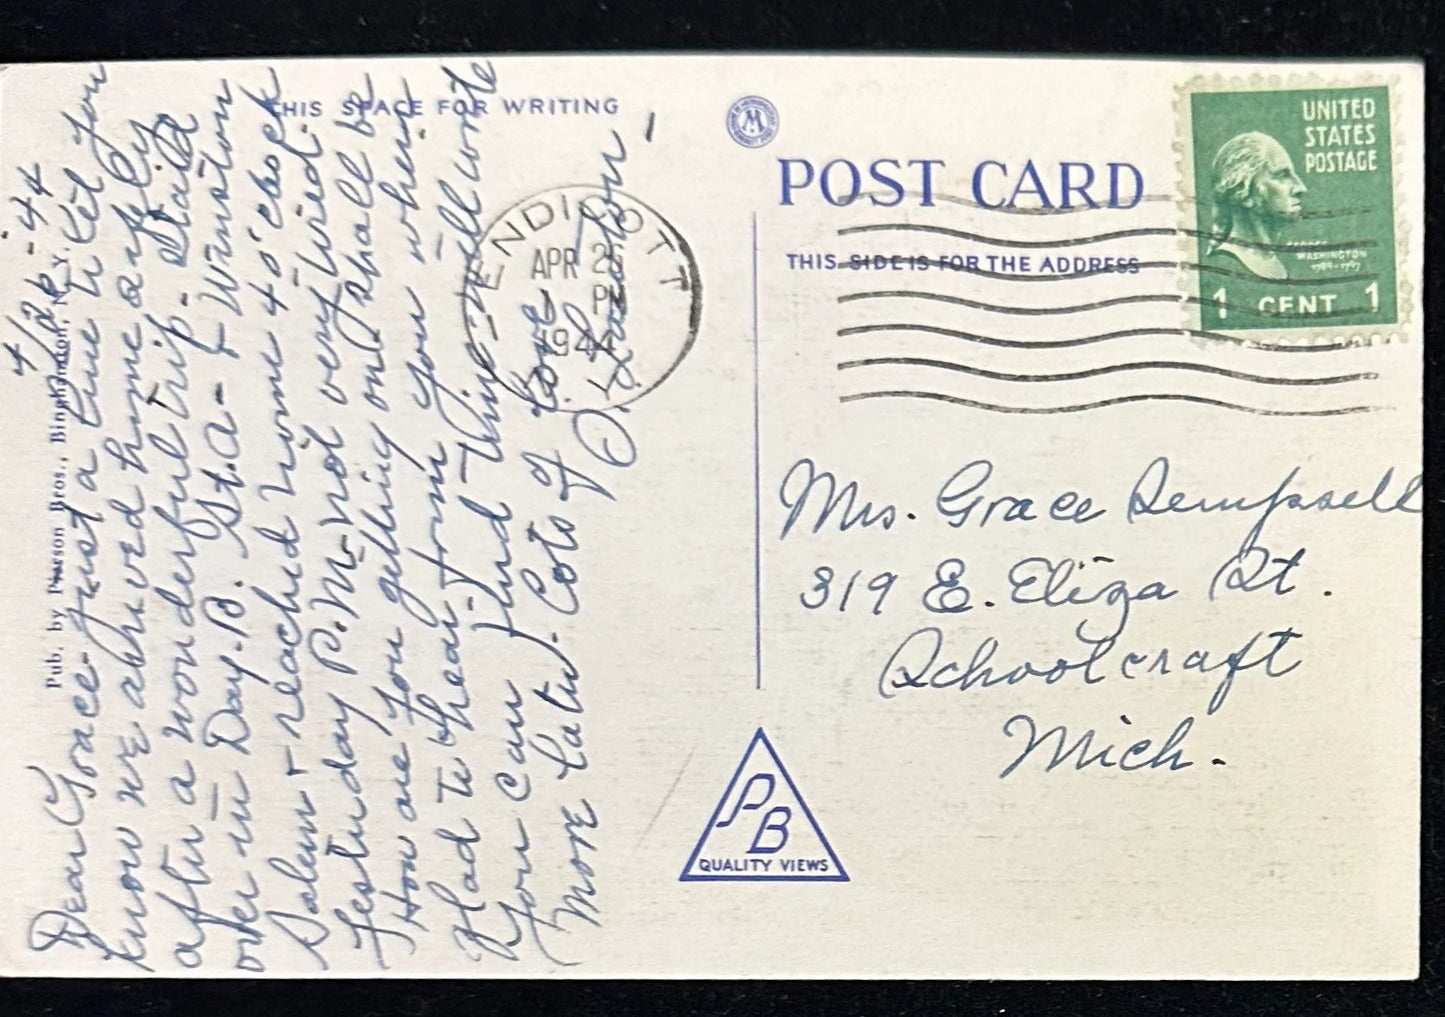 THIS SPACE FOR WRITING
POST CARD
THIS SIDE IS FOR THE ADDRESS
UNITED
STATES
POSTAGE
GEORGE
WASHINGTON
1789-1797
1 CENT 1
ENDICOTT
APR 2
PM
1944
Pub. by Pearson Bros., Binghamton, N. Y.
4/26-44
Dear Grace-just a line to let you
know we arrived home safely
after a wonderful trip. Staid
over in Day.-O. St.A- & Winston
Salem & reached home 4 o'clock
Yesterday P.M. not very tired.
How are you getting on? shall be
glad to hear from you when
you can find time will write
more later. Lots of love
O.
Mrs. Grace Dempsell
319 E. Eliza St.
Schoolcraft
Mich.
PB
QUALITY VIEWS